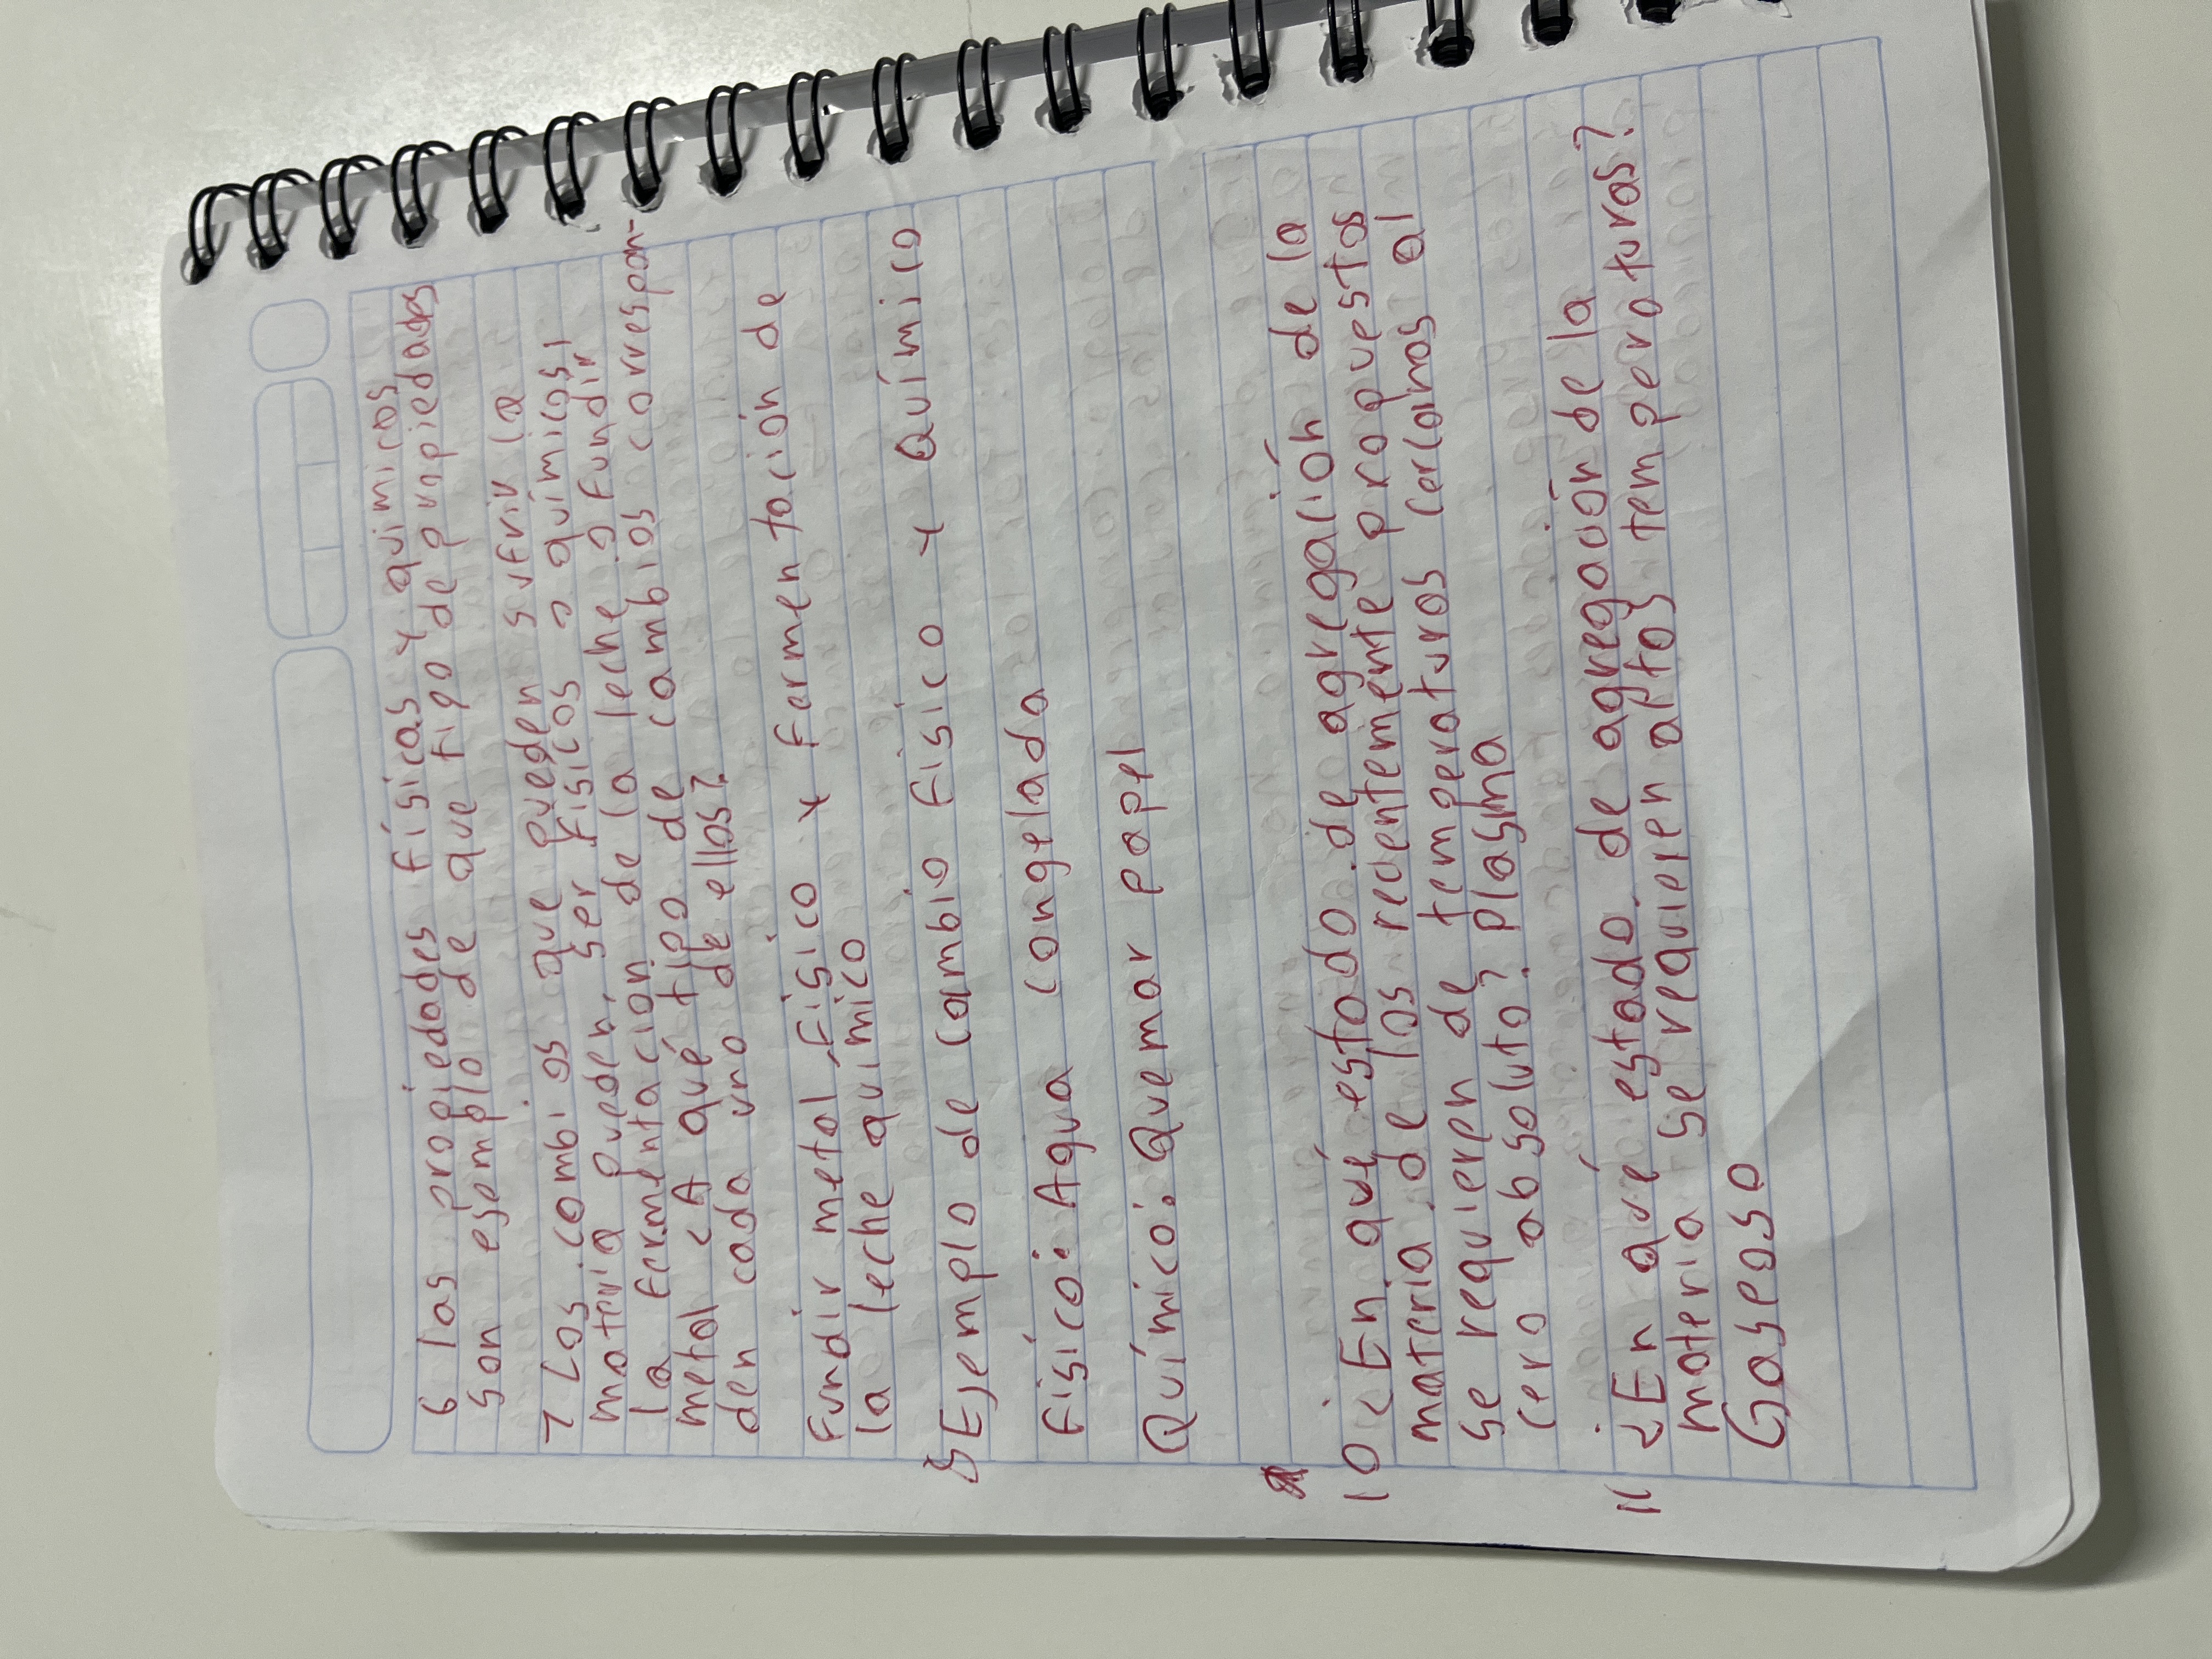 6 las propiedades físicas y quimicos
son esjomplo de que tipo de propiedados
7 Los combios que pueden sufrir la
materia pueden ser Físicos o químicos,
la fermentación de la leche o fundir
metal ¿A qué tipo de cambios correspon-
den cada uno de ellos?
Fundir metal Fisico y Formentación de
la leche químico
8 Ejemplo de cambio fisico y Químico
Fisico: Agua congelada
Químico: Quemar papel
10 ¿En qué estado de agregación de la
materia de los recientemente propuestos
se requieren de temperaturas cercanas al
cero absoluto? plasma
11 ¿En qué estado de agregación de la
materia se requieren altas temperaturas?
Gaseoso